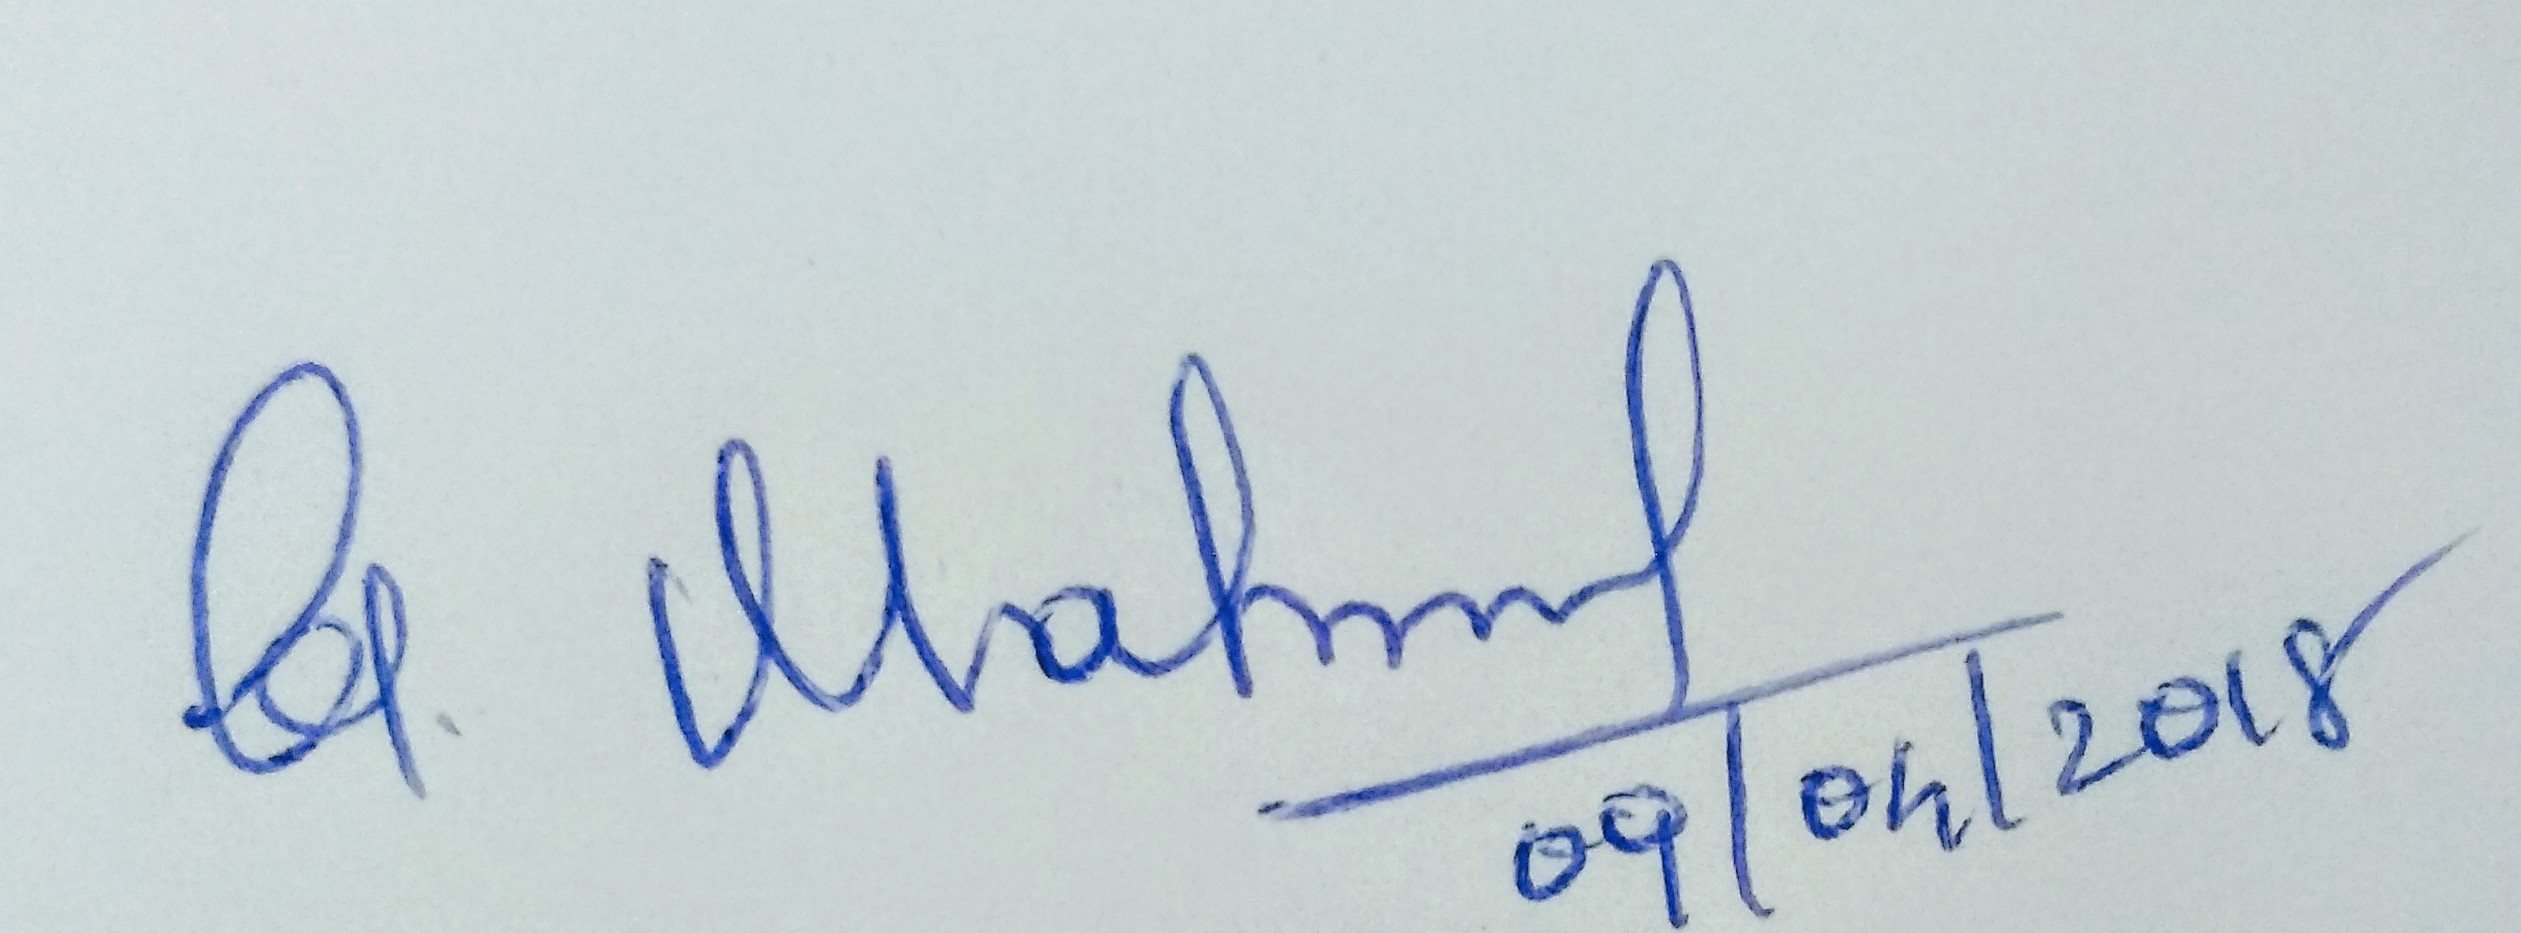 Mahmud
09/04/2018